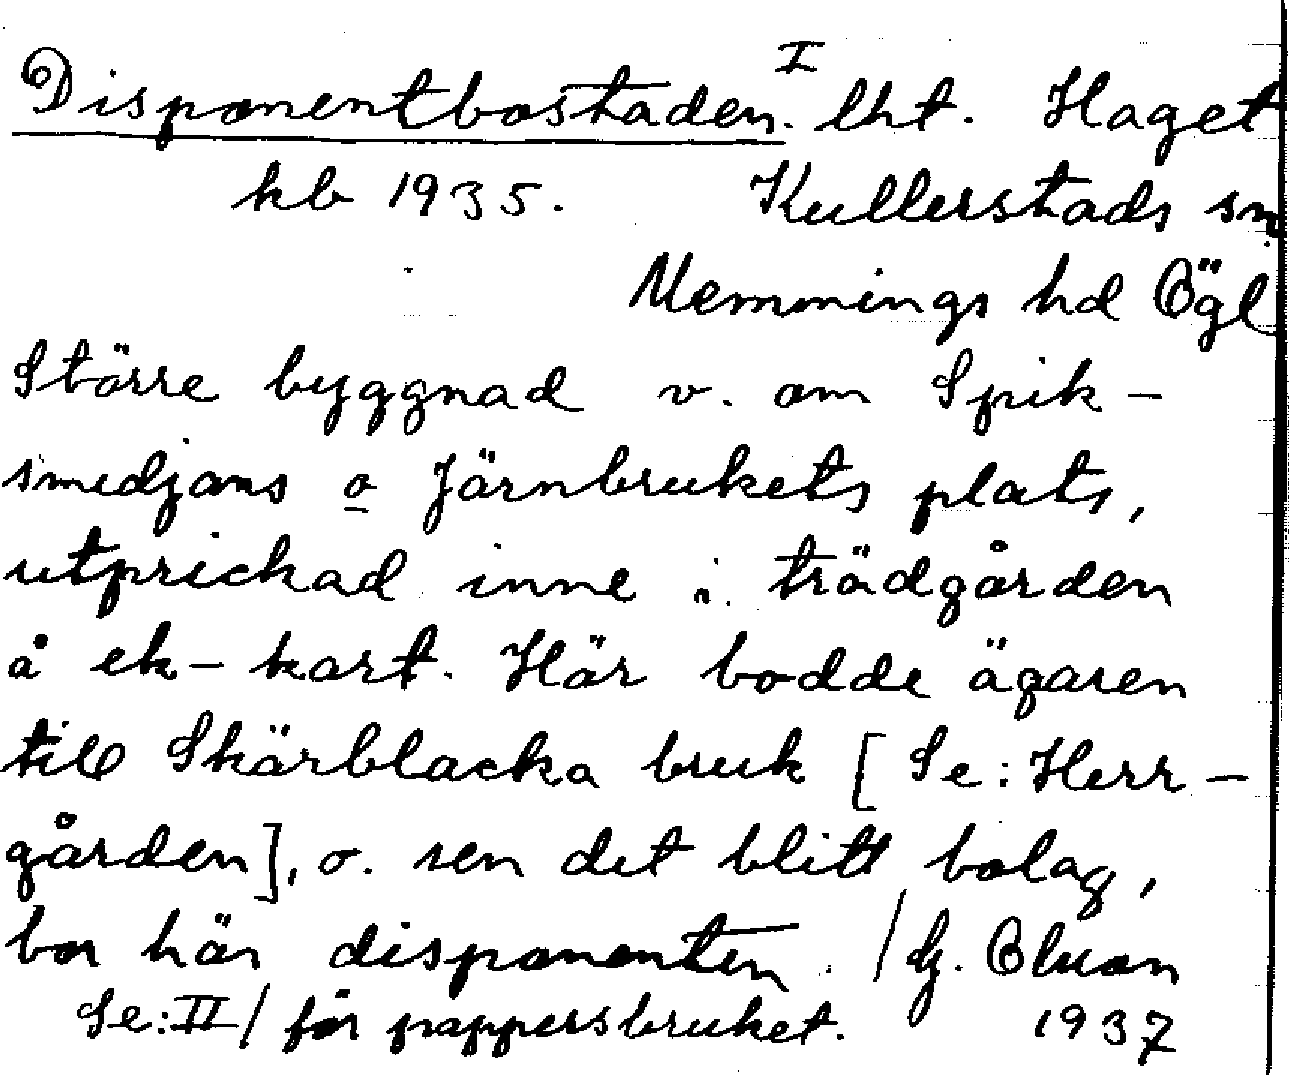 Disponentbostaden. I lht. Haget
kb 1935. Kullerstads sn
Memmings hd Ögl
Större byggnad v. om Spik-
smedjans o Järnbrukets plats,
utprickad inne i trädgården
å ek-kart. Här bodde ägaren
till Skärblacka bruk [Se: Herr-
gården], o. sen det blitt bolag,
bor här disponenten. /
Se: II/ för pappersbruket. 1937